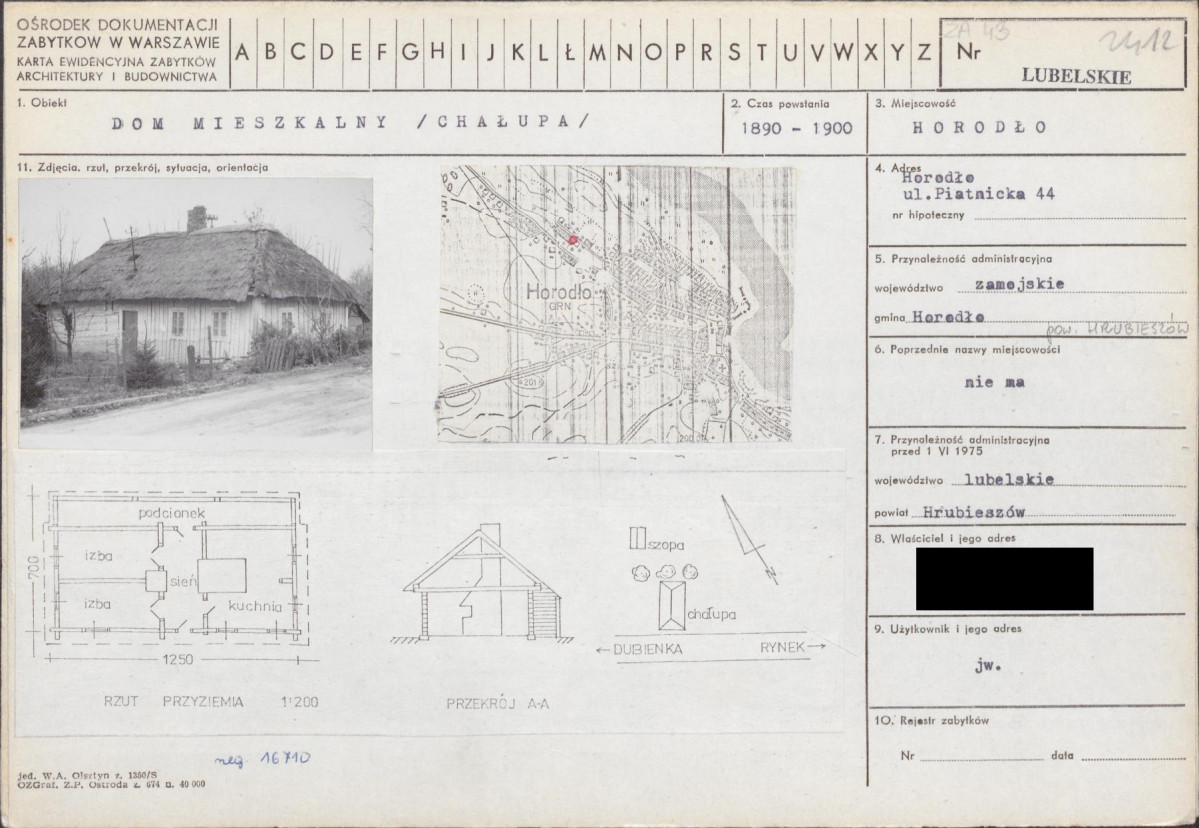 OŚRODEK DOKUMENTACJI
ZABYTKÓW W WARSZAWIE
KARTA EWIDENCYJNA ZABYTKÓW
ARCHITEKTURY I BUDOWNICTWA
A B C D E F G H I J K L Ł M N O P R S T U V W X Y Z
ZA 43
Nr
LUBELSKIE
1. Obiekt
DOM MIESZKALNY /CHAŁUPA/
2. Czas powstania
1890 - 1900
3. Miejscowość
HORODŁO
11. Zdjęcia, rzut, przekrój, sytuacja, orientacja
4. Adres
Horodło
ul.Piatnicka 44
nr hipoteczny
5. Przynależność administracyjna
województwo zamojskie
gmina Horodło
pow. HRUBIESZÓW
6. Poprzednie nazwy miejscowości
nie ma
7. Przynależność administracyjna
przed 1 VI 1975
województwo lubelskie
powiat Hrubieszów
8. Właściciel i jego adres
9. Użytkownik i jego adres
jw.
10. Rejestr zabytków
Nr data
Horodło
GRN
201
podcionek
izba
sień
izba
kuchnia
700
1250
RZUT PRZYZIEMIA 1:200
PRZEKRÓJ A-A
szopa
chałupa
N
←DUBIENKA RYNEK→
neg. 16710
jed. W.A. Olsztyn z. 1350/S
OZGraf. Z.P. Ostróda z. 674 n. 40 000